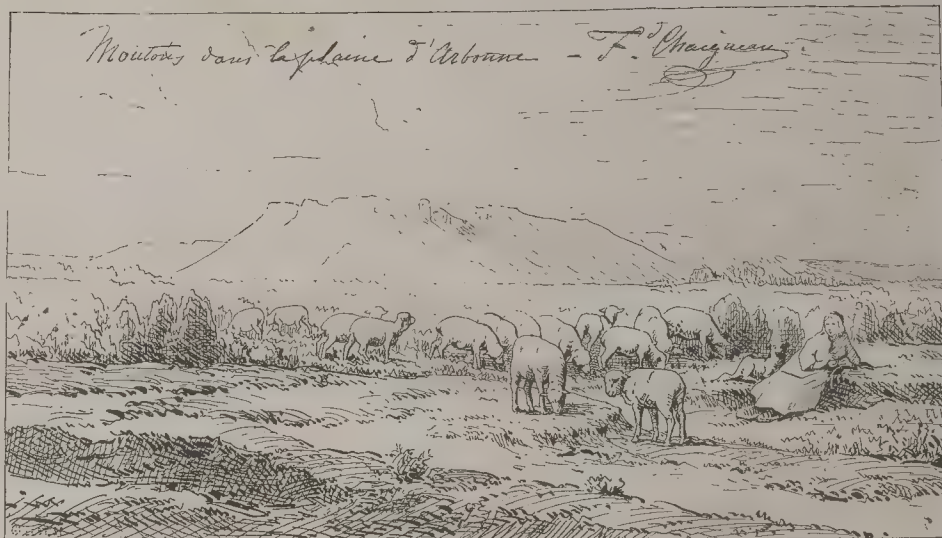 Moutons dans la plaine d'Arbonne - F.d Chaigneau